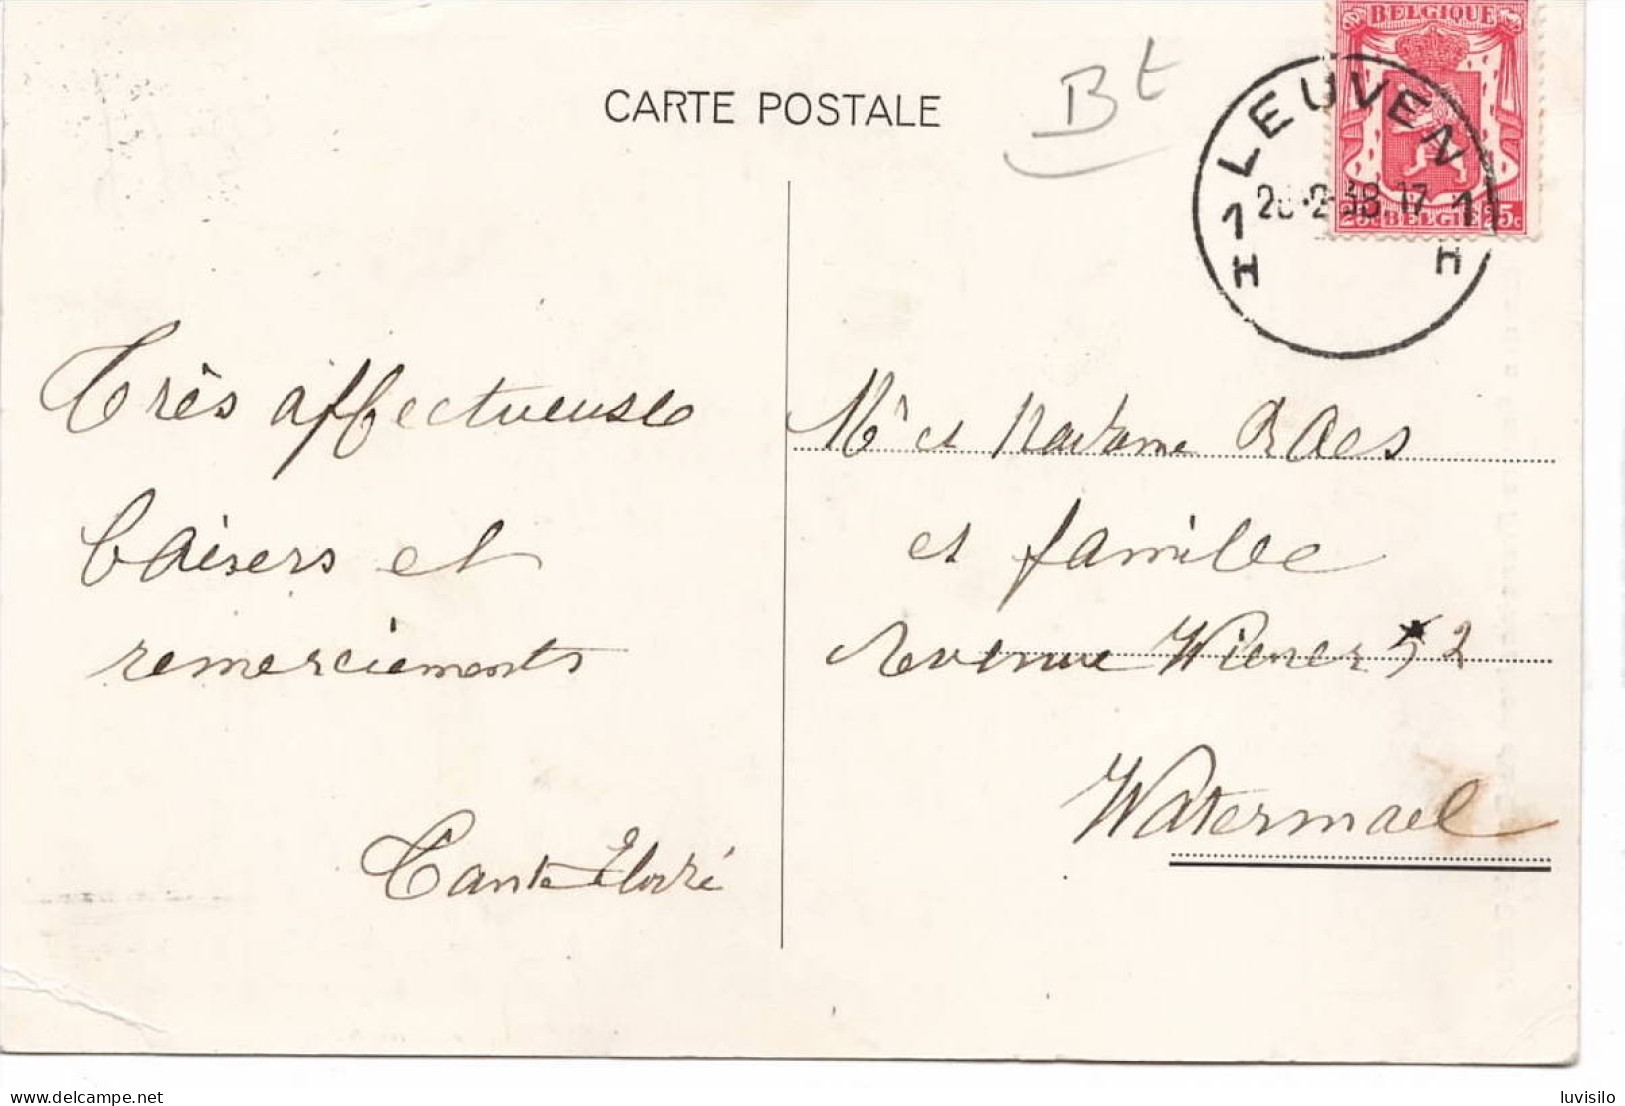 BELGIQUE
CARTE POSTALE
Bt
LEUVEN
1 2-38 17 1
25c BELGIE 25c
H H
Très affectueuse
baisers et
remerciements
Tante
Mr et Madame Raes
et famille
Avenue Wiener 52
Watermael
delcampe.net
luvisilo